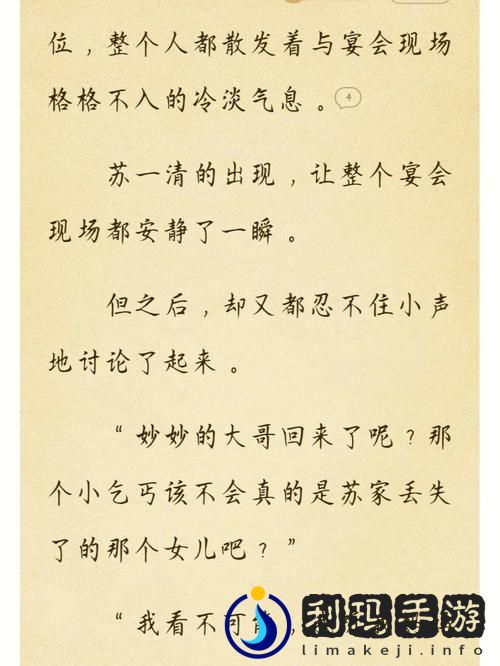 位，整个人都散发着与宴会现场
格格不入的冷淡气息。
4
苏一清的出现，让整个宴会
现场都安静了一瞬。
但之后，却又都忍不住小声
地讨论了起来。
“妙妙的大哥回来了呢？那
个小乞丐该不会真的是苏家丢失
了的那个女儿吧？”
“我看不可能，
利玛手游
limakeji.info